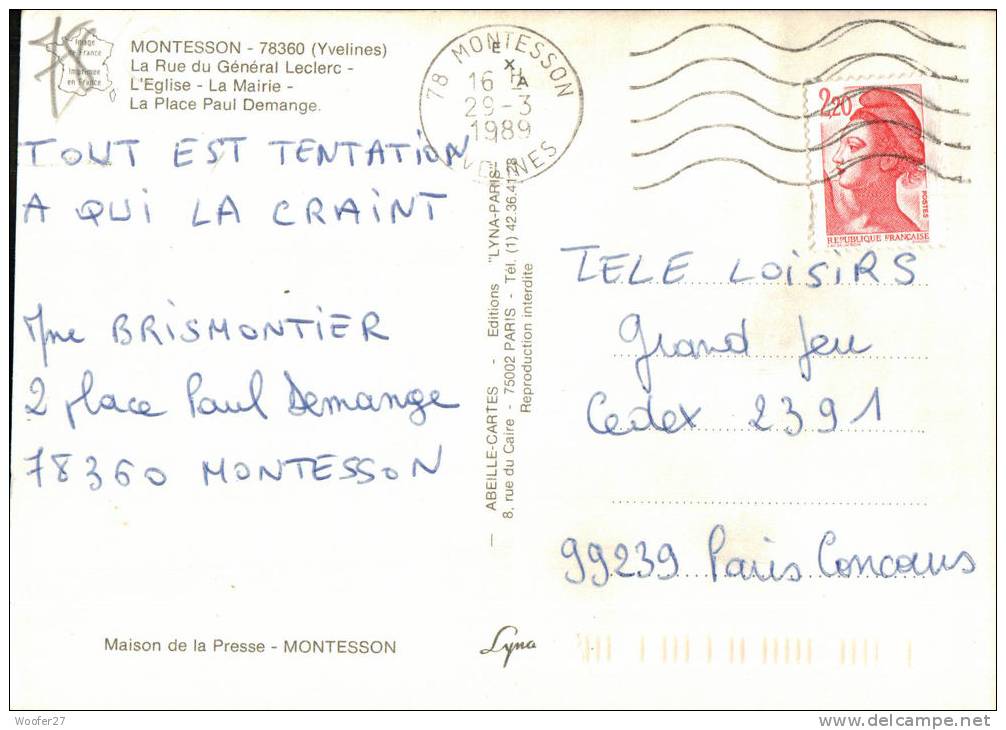 78
Image de France
Imprimée en France
MONTESSON - 78360 (Yvelines)
La Rue du Général Leclerc -
L'Eglise - La Mairie -
La Place Paul Demange.
78 MONTESSON
16 H
29-3
1989
YVELINES
2,20
POSTES
REPUBLIQUE FRANÇAISE
TOUT EST TENTATION
A QUI LA CRAINT
Mme BRISMONTIER
2 place Paul Demange
78360 MONTESSON
— ABEILLE-CARTES - Editions "LYNA-PARIS"
8, rue du Caire - 75002 PARIS - Tél. (1) 42.36.41.28
Reproduction interdite
TELE LOISIRS
Grand Jeu
Cedex 2391
99239 Paris Concours
Maison de la Presse - MONTESSON
Lyna
Woofer27
delcampe.net